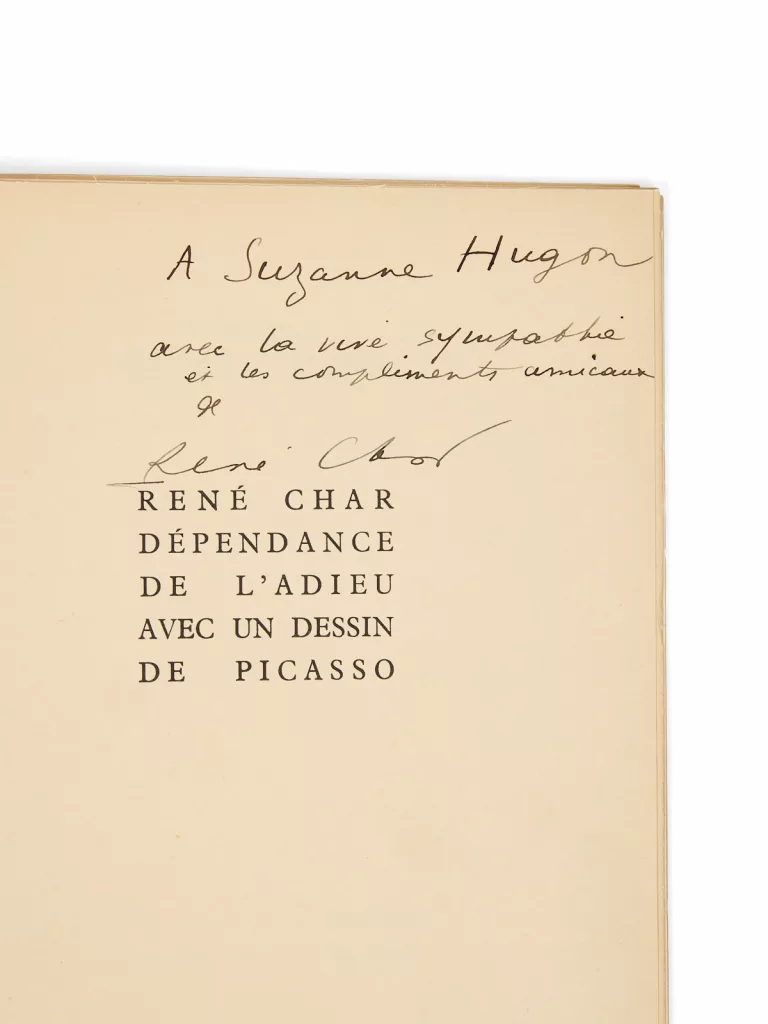 A Suzanne Hugon
avec la vive sympathie
et les compliments amicaux
de
René Char
RENÉ CHAR
DÉPENDANCE
DE L'ADIEU
AVEC UN DESSIN
DE PICASSO